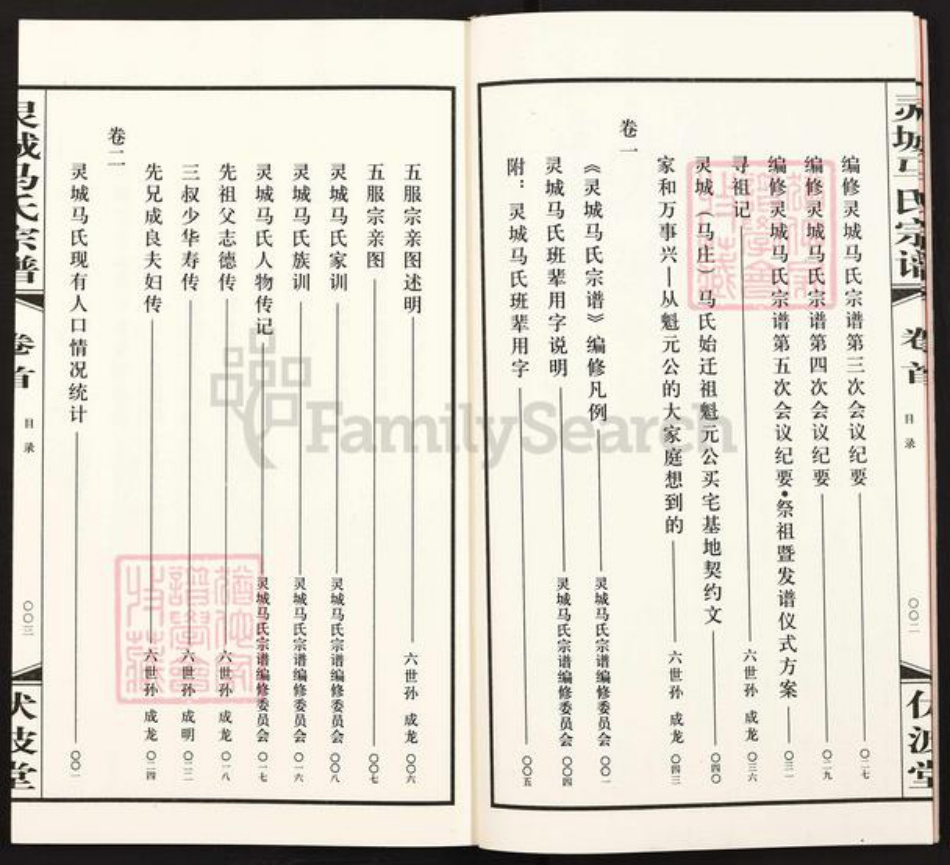 灵城马氏宗谱
卷首
目录
〇〇二
伏波堂
编修灵城马氏宗谱第三次会议纪要 〇二七
编修灵城马氏宗谱第四次会议纪要 〇二九
编修灵城马氏宗谱第五次会议纪要•祭祖暨发谱仪式方案 〇三一
寻祖记 六世孙 成龙 〇三六
灵城（马庄）马氏始迁祖魁元公买宅基地契约文 〇四〇
家和万事兴—从魁元公的大家庭想到的 六世孙 成龙 〇四三
卷一
《灵城马氏宗谱》编修凡例 灵城马氏宗谱编修委员会 〇〇一
灵城马氏班辈用字说明 灵城马氏宗谱编修委员会 〇〇四
附：灵城马氏班辈用字 〇〇五
五服宗亲图述明 六世孙 成龙 〇〇六
五服宗亲图 〇〇七
灵城马氏家训 灵城马氏宗谱编修委员会 〇〇八
灵城马氏族训 灵城马氏宗谱编修委员会 〇一六
灵城马氏人物传记 灵城马氏宗谱编修委员会 〇一七
先祖父志德传 六世孙 成龙 〇一八
三叔少华寿传 六世孙 成明 〇二二
先兄成良夫妇传 六世孙 成龙 〇二四
卷二
灵城马氏现有人口情况统计 〇〇一
灵城马氏宗谱
卷首
目录
〇〇三
伏波堂
FamilySearch